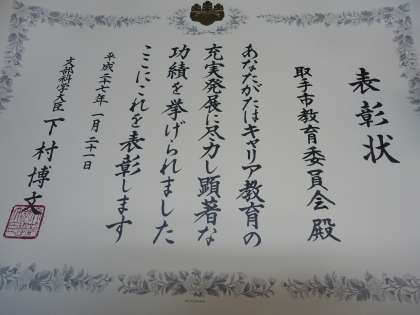 表彰状
取手市教育委員会殿
あなたがたはキャリア教育の
充実発展に尽力し顕著な
功績を挙げられました
ここにこれを表彰します
平成二十七年一月二十一日
文部科学大臣 下村博文